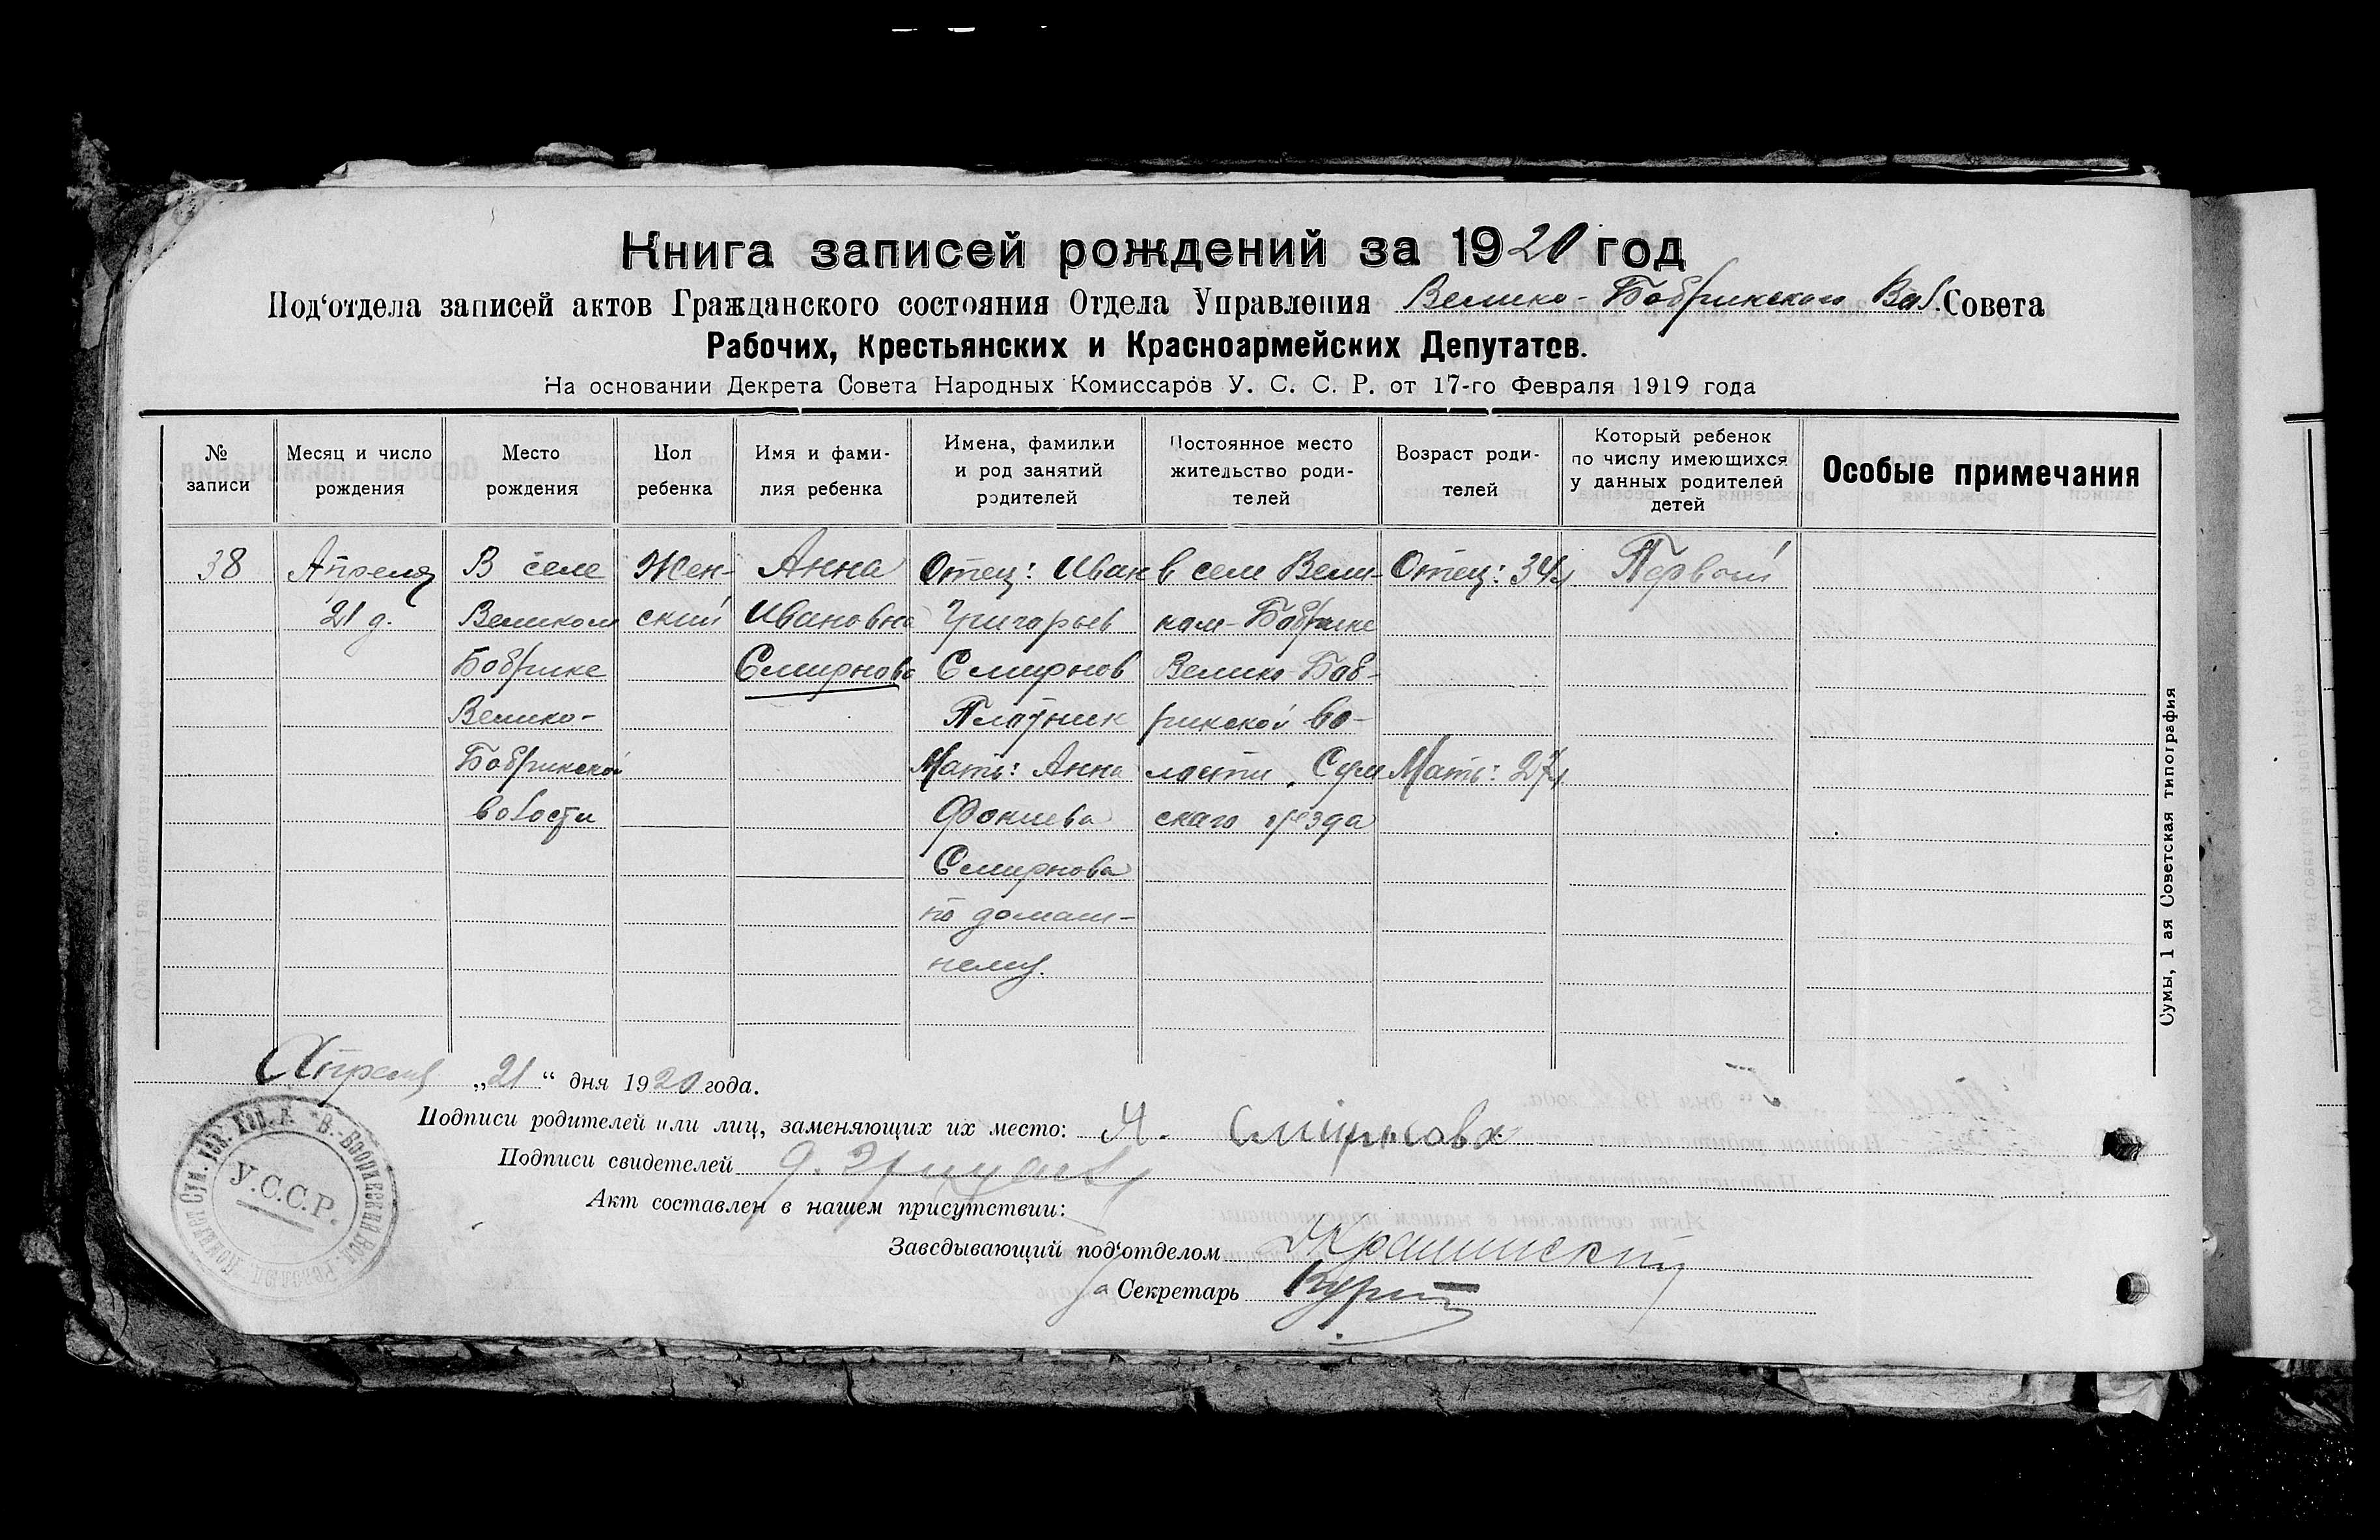 Книга записей рождений за 1920 год
Под‘отдела записей актов Гражданского состояния Отдела Управления Велико-Бобрикского Вол. Совета
Рабочих, Крестьянских и Красноармейских Депутатов.
На основании Декрета Совета Народных Комиссаров У. С. С. Р. от 17-го Февраля 1919 года
№
записи
Месяц и число
рождения
Место
рождения
Пол
ребенка
Имя и фами-
лия ребенка
Имена, фамилии
и род занятий
родителей
Постоянное место
жительство роди-
телей
Возраст роди-
телей
Который ребенок
по числу имеющихся
у данных родителей
детей
Особые примечания
38
Апреля
21 д.
В селе
Великом
Бобрике
Велико-
Бобрикской
волости
Жен-
ский
Анна
Ивановна
Смирнова
Отец: Иван
Григорьев
Смирнов
Плотник
Мать: Анна
Фокиева
Смирнова
по домаш-
нему.
в селе Вели-
ком-Бобрике
Велико-Боб-
рикской во-
лости, Сум
скаго уезда
Отец: 34 л
Мать: 27 л
Первый
Сумы, 1 ая Советская типография
Апреля „21“ дня 1920 года.
Подписи родителей или лиц, заменяющих их место: А. Смирнова
Подписи свидетелей
Акт составлен в нашем присутствии:
Заведывающий под‘отделом
За Секретарь
У.С.С.Р.